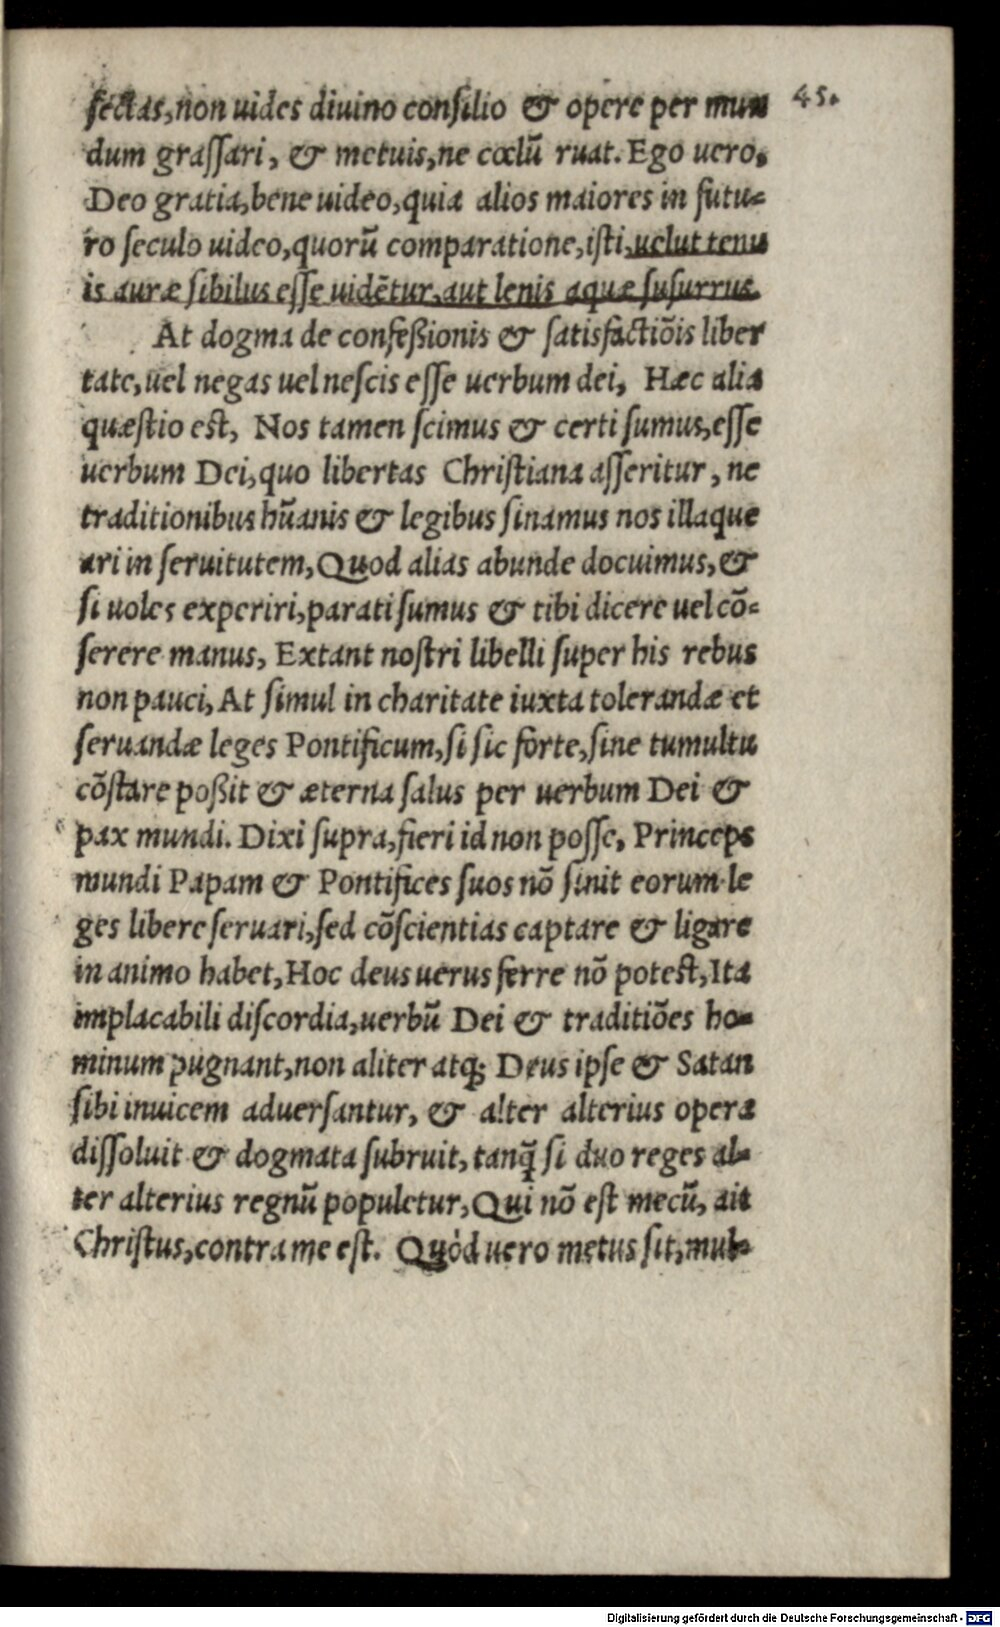 sectas, non uides diuino consilio & opere per mun 45.
dum grassari, & metuis, ne cœlū ruat. Ego uero,
Deo gratia, bene uideo, quia alios maiores in futu-
ro seculo uideo, quorū comparatione, isti, uelut tenu
is auræ sibilus esse uidētur, aut lenis aquæ susurrus.
At dogma de confeßionis & satisfactiōis liber
tate, uel negas uel nescis esse uerbum dei, Hæc alia
quæstio est, Nos tamen scimus & certi sumus, esse
uerbum Dei, quo libertas Christiana asseritur, ne
traditionibus hūanis & legibus sinamus nos illaque
ari in seruitutem, Quod alias abunde docuimus, &
si uoles experiri, parati sumus & tibi dicere uel cō-
serere manus, Extant nostri libelli super his rebus
non pauci, At simul in charitate iuxta tolerandæ et
seruandæ leges Pontificum, si sic forte, sine tumultu
cōstare poßit & æterna salus per uerbum Dei &
pax mundi. Dixi supra, fieri id non posse, Princeps
mundi Papam & Pontifices suos nō sinit eorum le
ges libere seruari, sed cōscientias captare & ligare
in animo habet, Hoc deus uerus ferre nō potest, Ita
implacabili discordia, uerbū Dei & traditiōes ho-
minum pugnant, non aliter atq; Deus ipse & Satan
sibi inuicem aduersantur, & alter alterius opera
dissoluit & dogmata subruit, tanq̄ si duo reges al-
ter alterius regnū populetur, Qui nō est mecū, ait
Christus, contra me est. Quòd uero metus sit, mul-
Digitalisierung gefördert durch die Deutsche Forschungsgemeinschaft - DFG